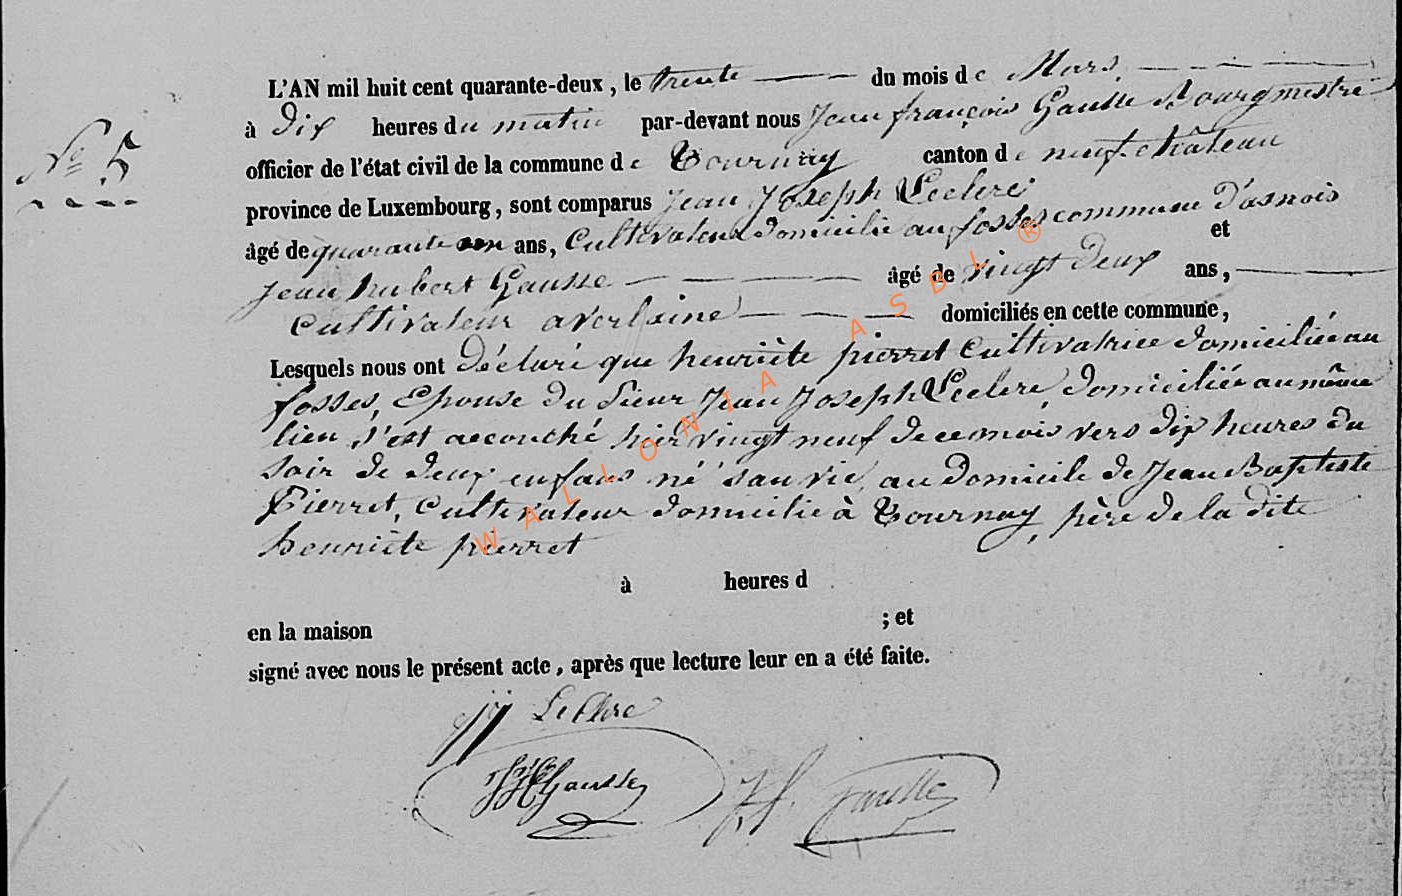 L'AN mil huit cent quarante-deux, le trente du mois de Mars
à Dix heures du matin par-devant nous Jean françois Gausse Bourgmestre
N° 5
officier de l'état civil de la commune de Tournay canton de neufchâteau
province de Luxembourg, sont comparus Jean Joseph Leclere
âgé de quarante ans, Cultivateur domicilié au fosses commune D'asnois et
Jean hubert Gausse âgé de vingt Deux ans,
Cultivateur a Verlaine domiciliés en cette commune,
Lesquels nous ont Déclaré que henriète pierret Cultivatrice domiciliée au
fosses, Epouse du Sieur Jean Joseph Leclere, domiciliée au même
lieu s'est accouché hier vingt neuf de ce mois vers dix heures du
Soir de deux enfans né san vie, au Domicile de Jean Baptiste
Pierret, Cultivateur domicilié à Tournay, père de la dite
henriète pierret
à heures d
en la maison ; et
signé avec nous le présent acte, après que lecture leur en a été faite.
JJ LeClere
JH Gausse
J.f. Gausse
WALLONIA ASBL ®